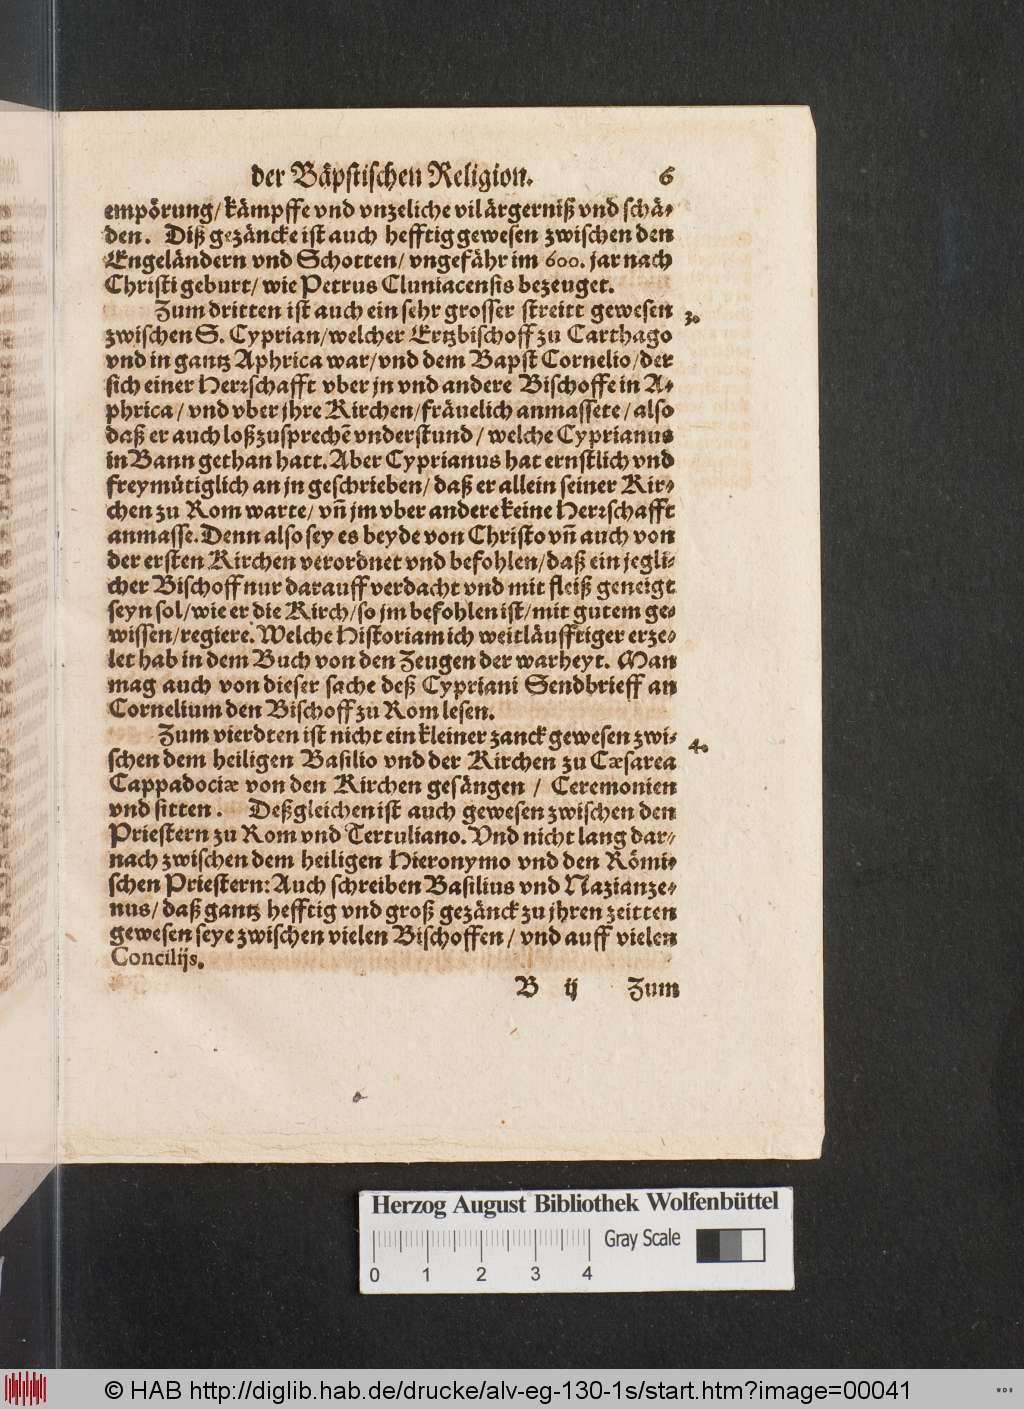 der Bäpstischen Religion. 6
empörung/ kämpffe vnd vnzeliche vil ärgerniß vnd schä⸗
den. Diß gezäncke ist auch hefftig gewesen zwischen den
Engeländern vnd Schotten/ vngefähr im 600. jar nach
Christi geburt/ wie Petrus Cluniacensis bezeuget.
Zum dritten ist auch ein sehr grosser streitt gewesen 3.
zwischen S. Cyprian/ welcher Ertzbischoff zu Carthago
vnd in gantz Aphrica war/ vnd dem Bapst Cornelio/ der
sich einer Herꝛschafft vber jn vnd andere Bischoffe in A⸗
phrica/ vnd vber jhre Kirchen/ fräuelich anmassete/ also
daß er auch loß zusprechẽ vnderstund/ welche Cyprianus
in Bann gethan hatt. Aber Cyprianus hat ernstlich vnd
freymütiglich an jn geschrieben/ daß er allein seiner Kir⸗
chen zu Rom warte/ vñ jm vber andere keine Herꝛschafft
anmasse. Denn also sey es beyde von Christo vñ auch von
der ersten Kirchen verordnet vnd befohlen/ daß ein jegli⸗
cher Bischoff nur darauff verdacht vnd mit fleiß geneigt
seyn sol/ wie er die Kirch/ so jm befohlen ist/ mit gutem ge⸗
wissen/ regiere. Welche Historiam ich weitläufftiger erze⸗
let hab in dem Buch von den Zeugen der warheyt. Man
mag auch von dieser sache deß Cypriani Sendbrieff an
Cornelium den Bischoff zu Rom lesen.
Zum vierdten ist nicht ein kleiner zanck gewesen zwi⸗ 4.
schen dem heiligen Basilio vnd der Kirchen zu Cæsarea
Cappadociæ von den Kirchen gesängen/ Ceremonien
vnd sitten. Deßgleichen ist auch gewesen zwischen den
Priestern zu Rom vnd Tertuliano. Vnd nicht lang dar⸗
nach zwischen dem heiligen Hieronymo vnd den Römi⸗
schen Priestern: Auch schreiben Basilius vnd Nazianze⸗
nus/ daß gantz hefftig vnd groß gezänck zu jhren zeitten
gewesen seye zwischen vielen Bischoffen/ vnd auff vielen
Concilijs.
B ij Zum
Herzog August Bibliothek Wolfenbüttel
Gray Scale
0 1 2 3 4
© HAB http://diglib.hab.de/drucke/alv-eg-130-1s/start.htm?image=00041